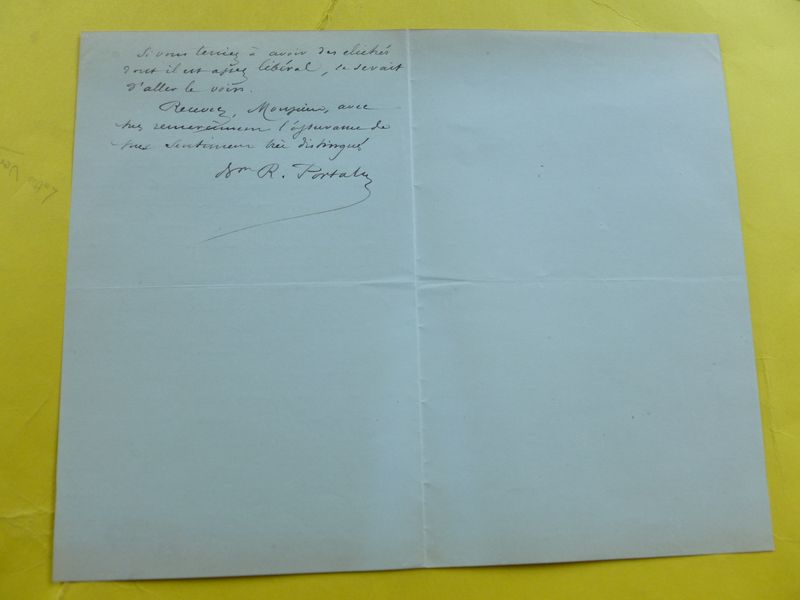 Si vous teniez à avoir des clichés
dont il est assez libéral, ce serait
d'aller le voir.
Recevez, Monsieur, avec
mes remerciemens l'assurance de
mes sentimens très distingués
Bon R. Portalis